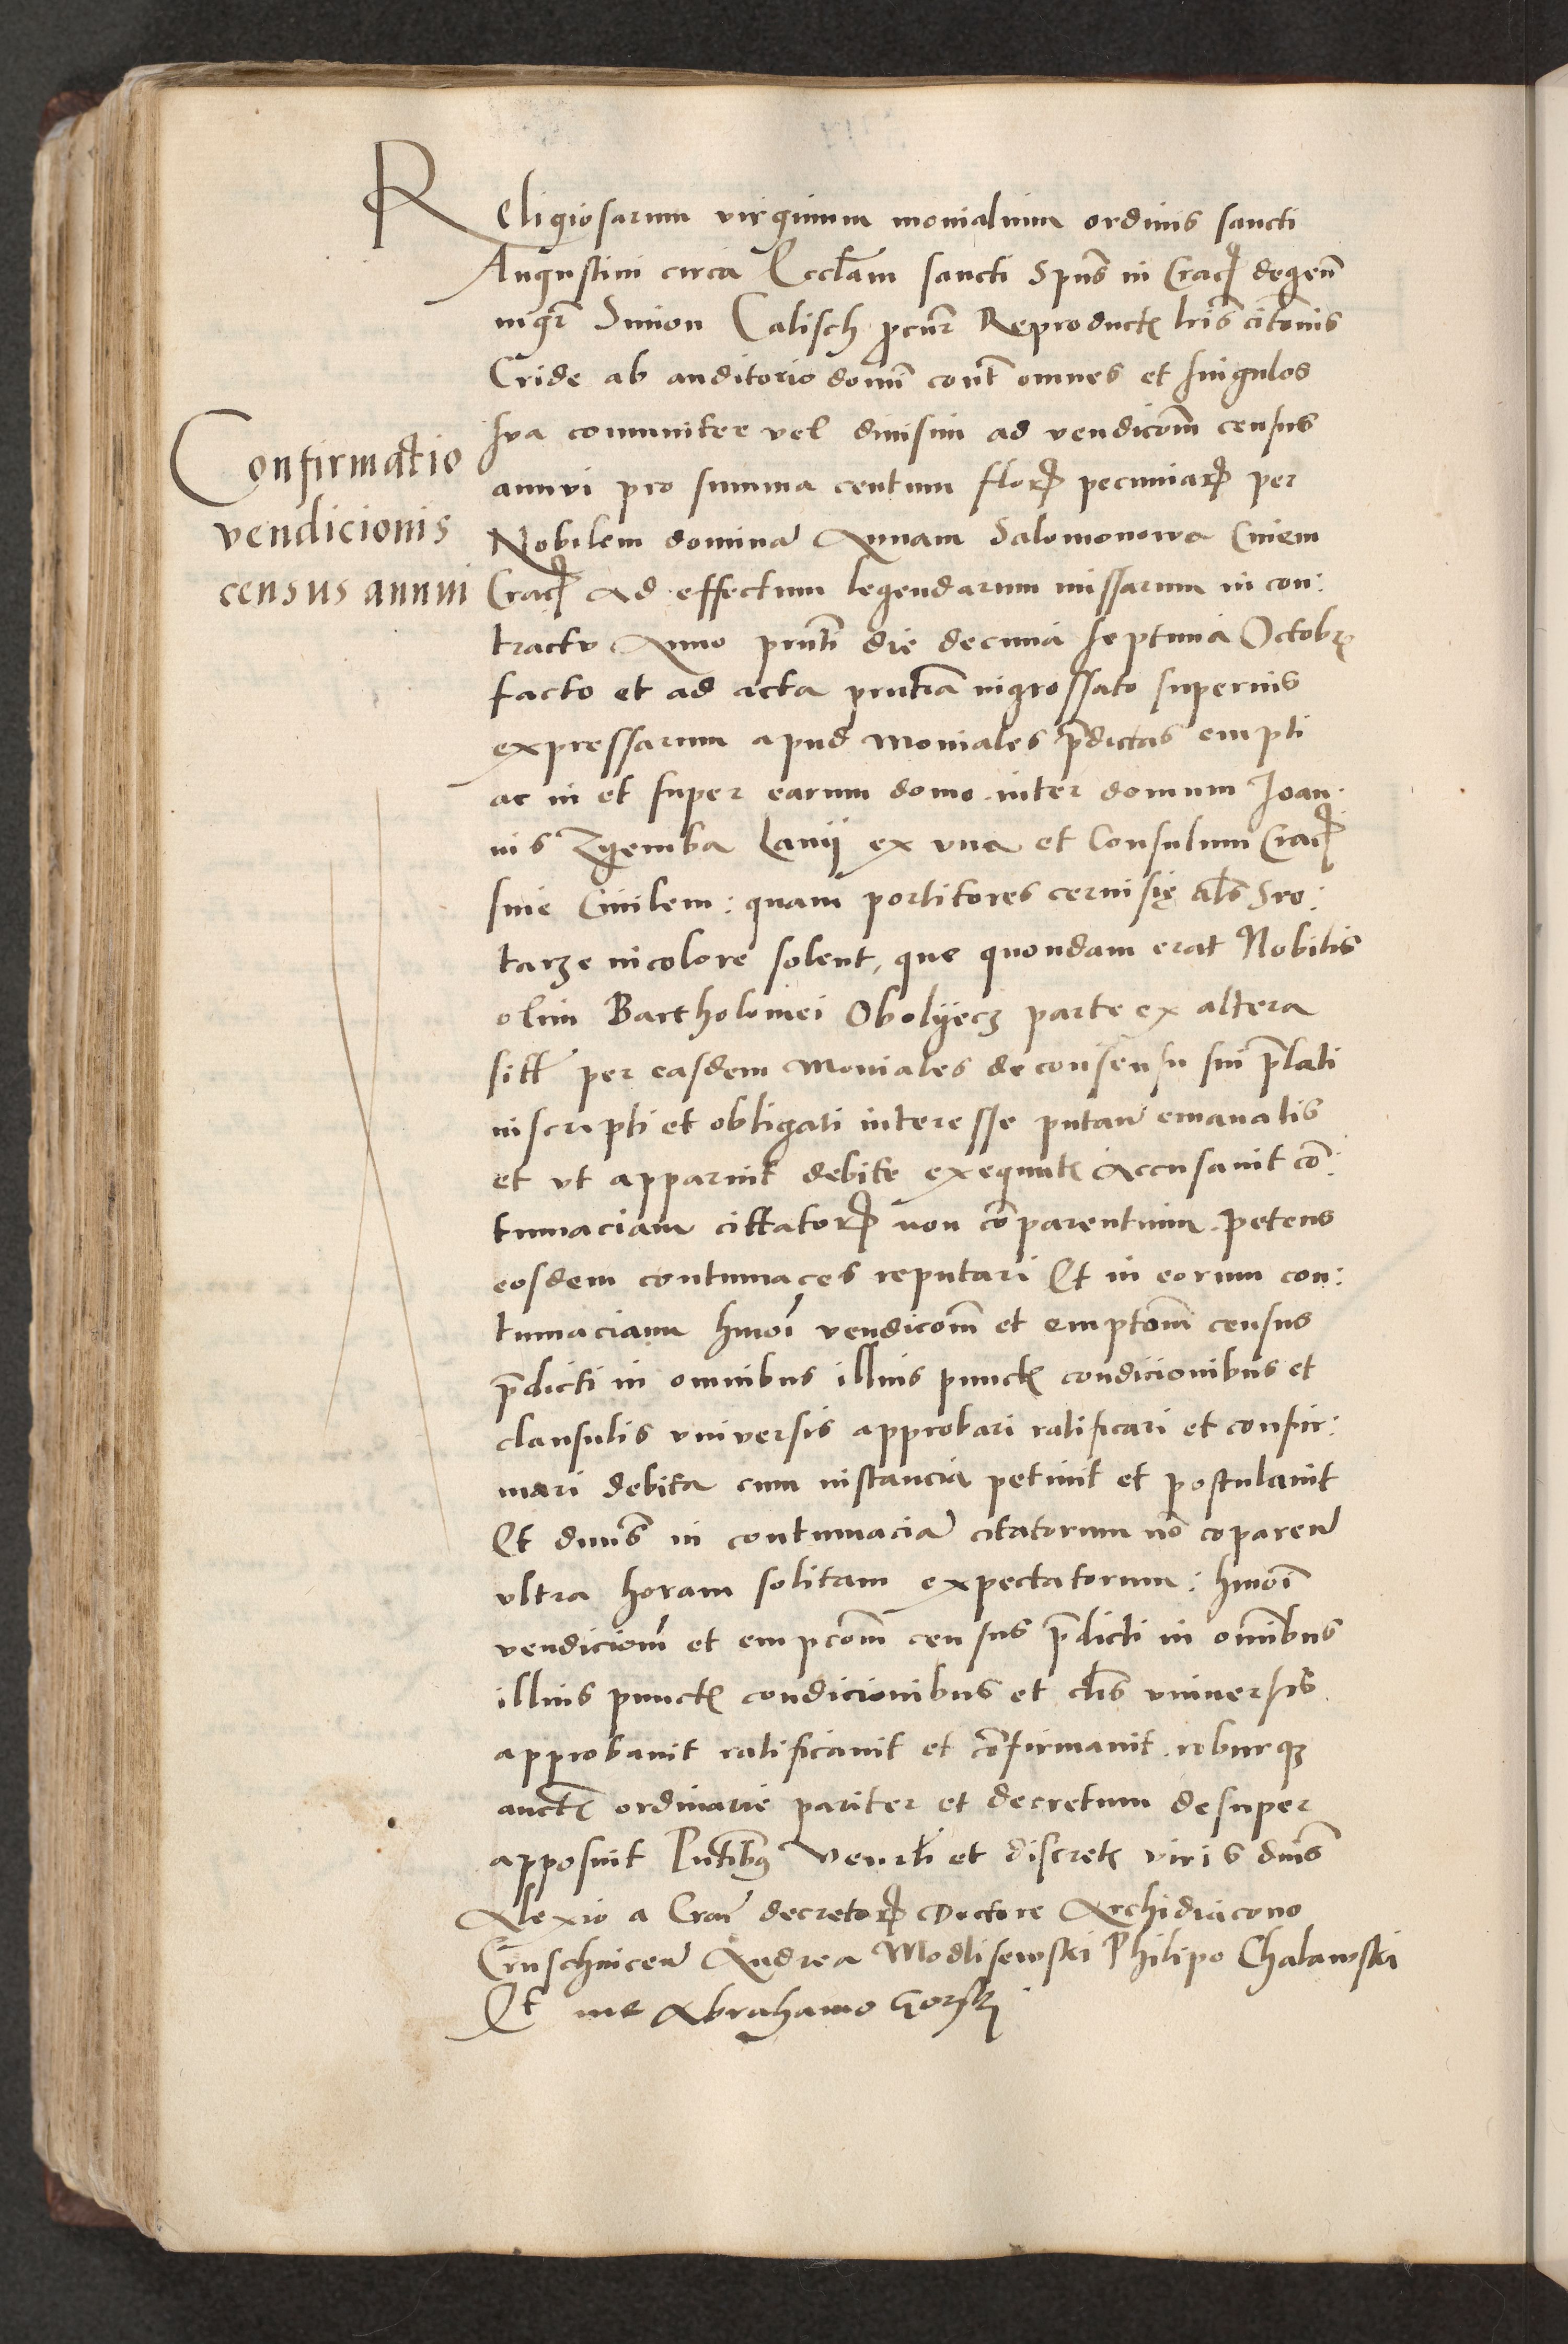 Confirmatio
vendicionis
census annui
Religiosarum virginum monialium ordinis sancti
Augustini circa Eccl̃am sancti Sp̃us in Crac̃ degeñ
mgr̃ Simon Calisch p̃cur̃ Reproductis l̃ris cit̃onis
Cride ab auditorio domĩ cont̃ omnes et singulos
sua comuniter vel diuisim ad vendicõm census
annui pro summa centum flor̃ pecuniar̃ per
Nobilem dominã Annam Salomonowa Ciuem
Crac̃ Ad effectum legendarum missarum in con:
tractu Anno pñti die decima septima Octobr̃
facto et ad acta pñtia ingrossato superius
expressarum apud Moniales p̃dictas empti
ac in et super earum domo inter domum Joan:
nis Zgemba Lanij ex vna et Consulum Crac̃
siue Ciuilem: quam portitores ceruisię al̃s Sro:
tarze incolere solent, que quondam erat Nobilis
olim Bartholomei Obolyecz parte ex altera
sitt̃ per easdem Moniales de consensu sui p̃lati
inscripti et obligati interesse putañ emanatis
et vt apparuit debite exequutis Accusauit cõ:
tumaciam cittator̃ non cõparentium petens
eosdem contumaces reputari Et in eorum con:
tumaciam hmõi vendicõm et emptõm census
p̃dicti in omnibus illius punctis condicionibus et
clausulis vniversis approbari ratificari et confir:
mari debita cum instancia petiuit et postulauit
Et dñus in contumaciã citatorum nõ cõpareñ
vltra horam solitam expectatorum: hmõi
vendicionẽ et empcõm census p̃dicti in omĩbus
illius punctis condicionibus et cl̃is vniuersis
approbauit ratificauit et cõfirmauit roburqȝ
auctis ordinarie pariter et decretum desuper
apposuit P̃ntibus Vener̃li et discretis viris dñis
Alexio a Crac̃ decretor̃ Doctore Archidiacono
Cruschuiceñ Andrea Modlisewski Philipo Chalawski
Et me Abrahamo Gorski